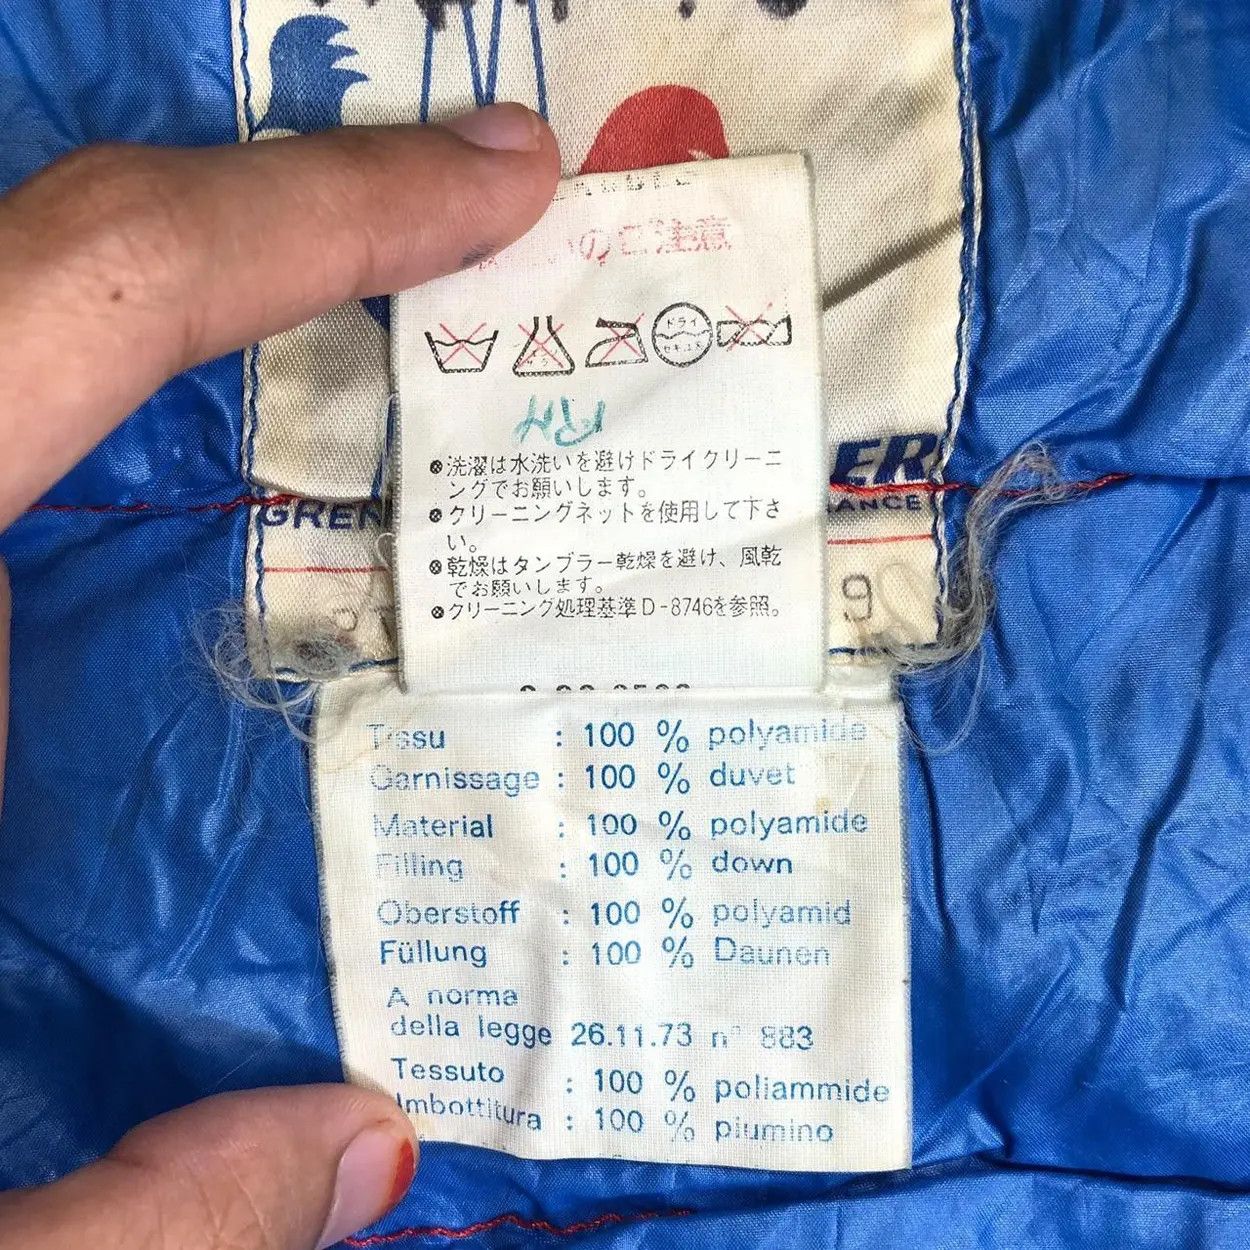 のご注意
ドライ
セキユ系
RH
⊗洗濯は水洗いを避けドライクリーニ
ングでお願いします。
⊗クリーニングネットを使用して下さ
い。
⊗乾燥はタンブラー乾燥を避け、風乾
でお願いします。
⊗クリーニング処理基準D-8746を参照。
ER
GREN
ANCE
9
Tissu : 100 % polyamide
Garnissage : 100 % duvet
Material : 100 % polyamide
Filling : 100 % down
Oberstoff : 100 % polyamid
Füllung : 100 % Daunen
A norma
della legge 26.11.73 n° 883
Tessuto : 100 % poliammide
Imbottitura : 100 % piumino